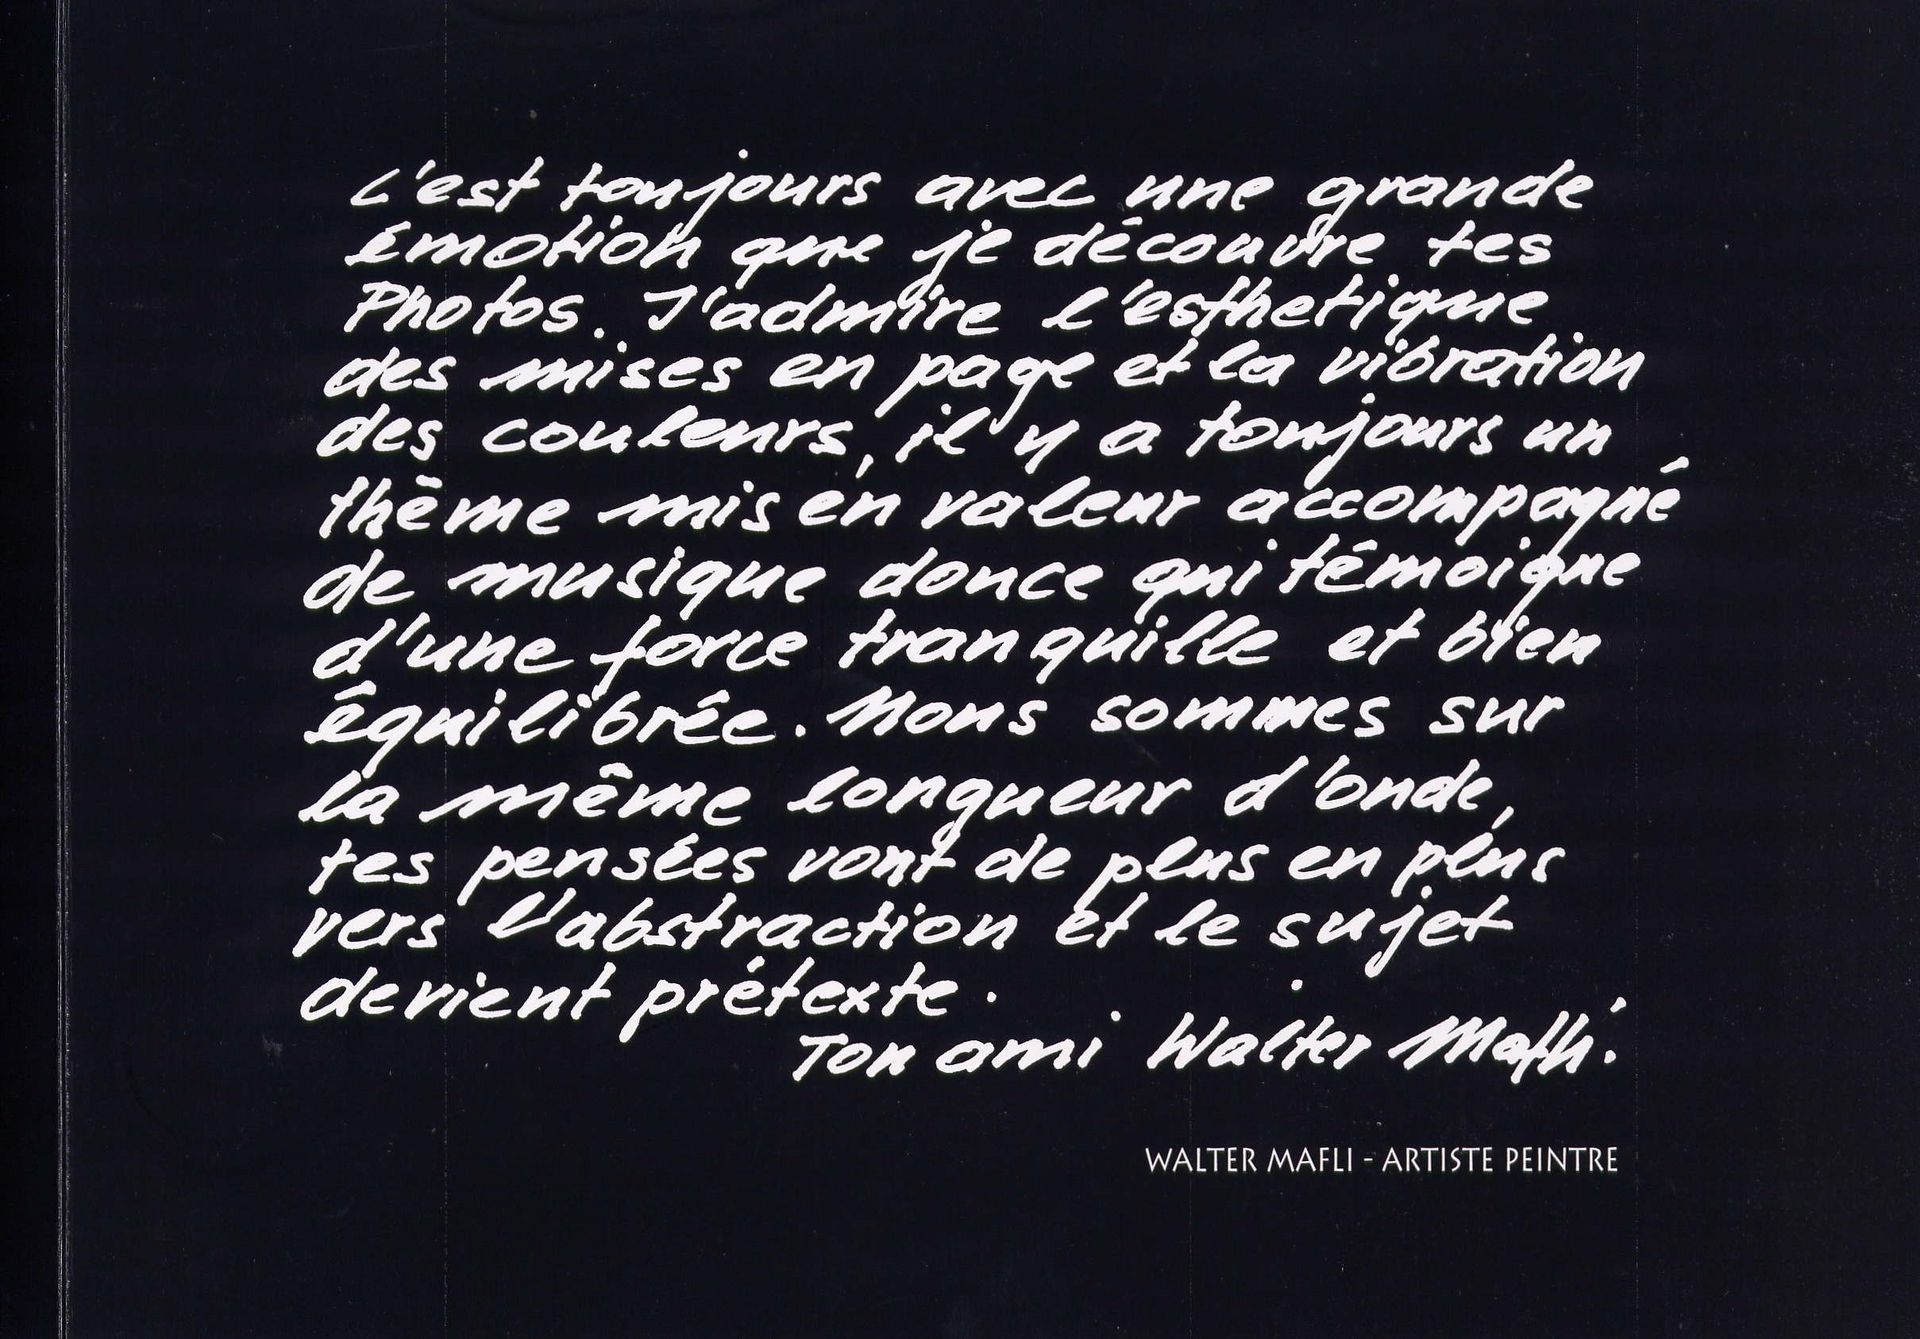 C'est toujours avec une grande
émotion que je découvre tes
Photos. J'admire l'esthetique
des mises en page et la vibration
des couleurs, il y a toujours un
thême mis en valeur accompagné
de musique douce qui témoigne
d'une force tranquille et bien
équilibrée. Nous sommes sur
la même longueur d'onde,
tes pensées vont de plus en plus
vers l'abstraction et le sujet
devient prétexte.
Ton ami Walter Mafli.
WALTER MAFLI - ARTISTE PEINTRE